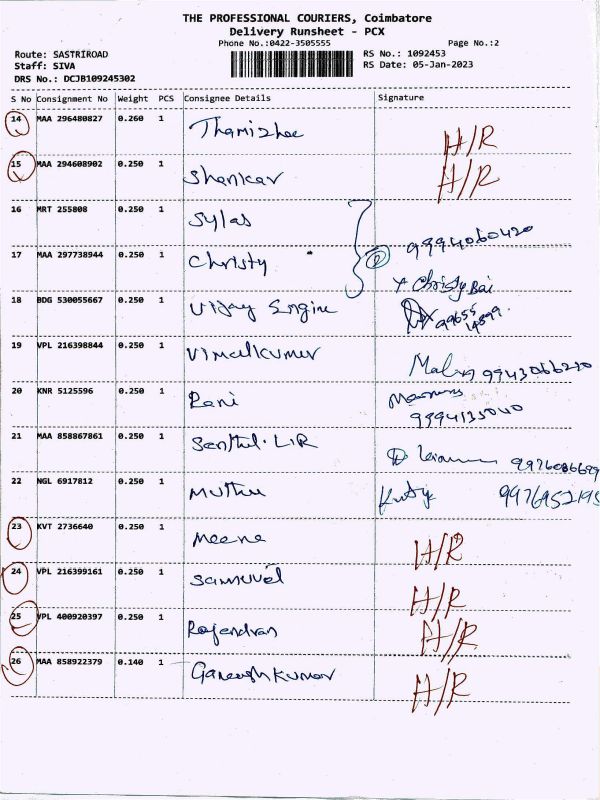 THE PROFESSIONAL COURIERS, Coimbatore
Delivery Runsheet - PCX
Phone No.:0422-3505555
Page No.:2
Route: SASTRIROAD
Staff: SIVA
DRS No.: DCJB109245302
RS No.: 1092453
RS Date: 05-Jan-2023
S No Consignment No Weight PCS Consignee Details Signature
14 MAA 296480827 0.260 1 H/R
15 MAA 294608902 0.250 1 Shankar H/R
16 MRT 255808 0.250 1 Sylas 9994060420
17 MAA 297738944 0.250 1 Christy Christy Bai
18 BDG 530055667 0.250 1 Vijay Engine
19 VPL 216398844 0.250 1 Vimalkumar
20 KNR 5125596 0.250 1 Rani
21 MAA 858867861 0.250 1 Senthil. L.R
22 NGL 6917812 0.250 1 Muthu 9976952195
23 KVT 2736640 0.250 1 Meena H/R
24 VPL 216399161 0.250 1 Samuvel H/R
25 VPL 400920397 0.250 1 Rajendran H/R
26 MAA 858922379 0.140 1 Ganeshkumar H/R